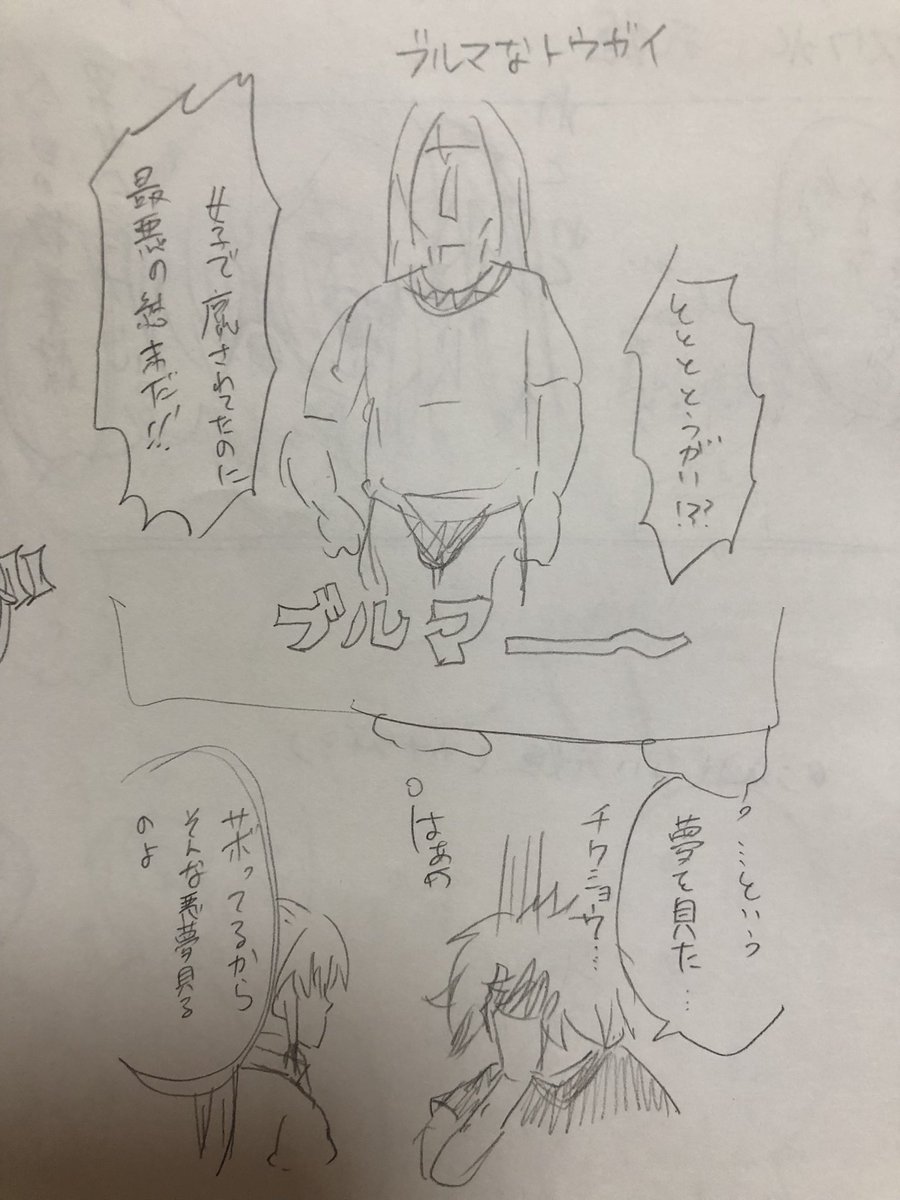 ブルマなトウガイ
ととととうがい!??
女子で廃されてたのに
最悪の結末だ!!
ブルマー
…という
夢を見た…
チクショーウ…
はぁ
サボってるから
そんな悪夢見る
のよ